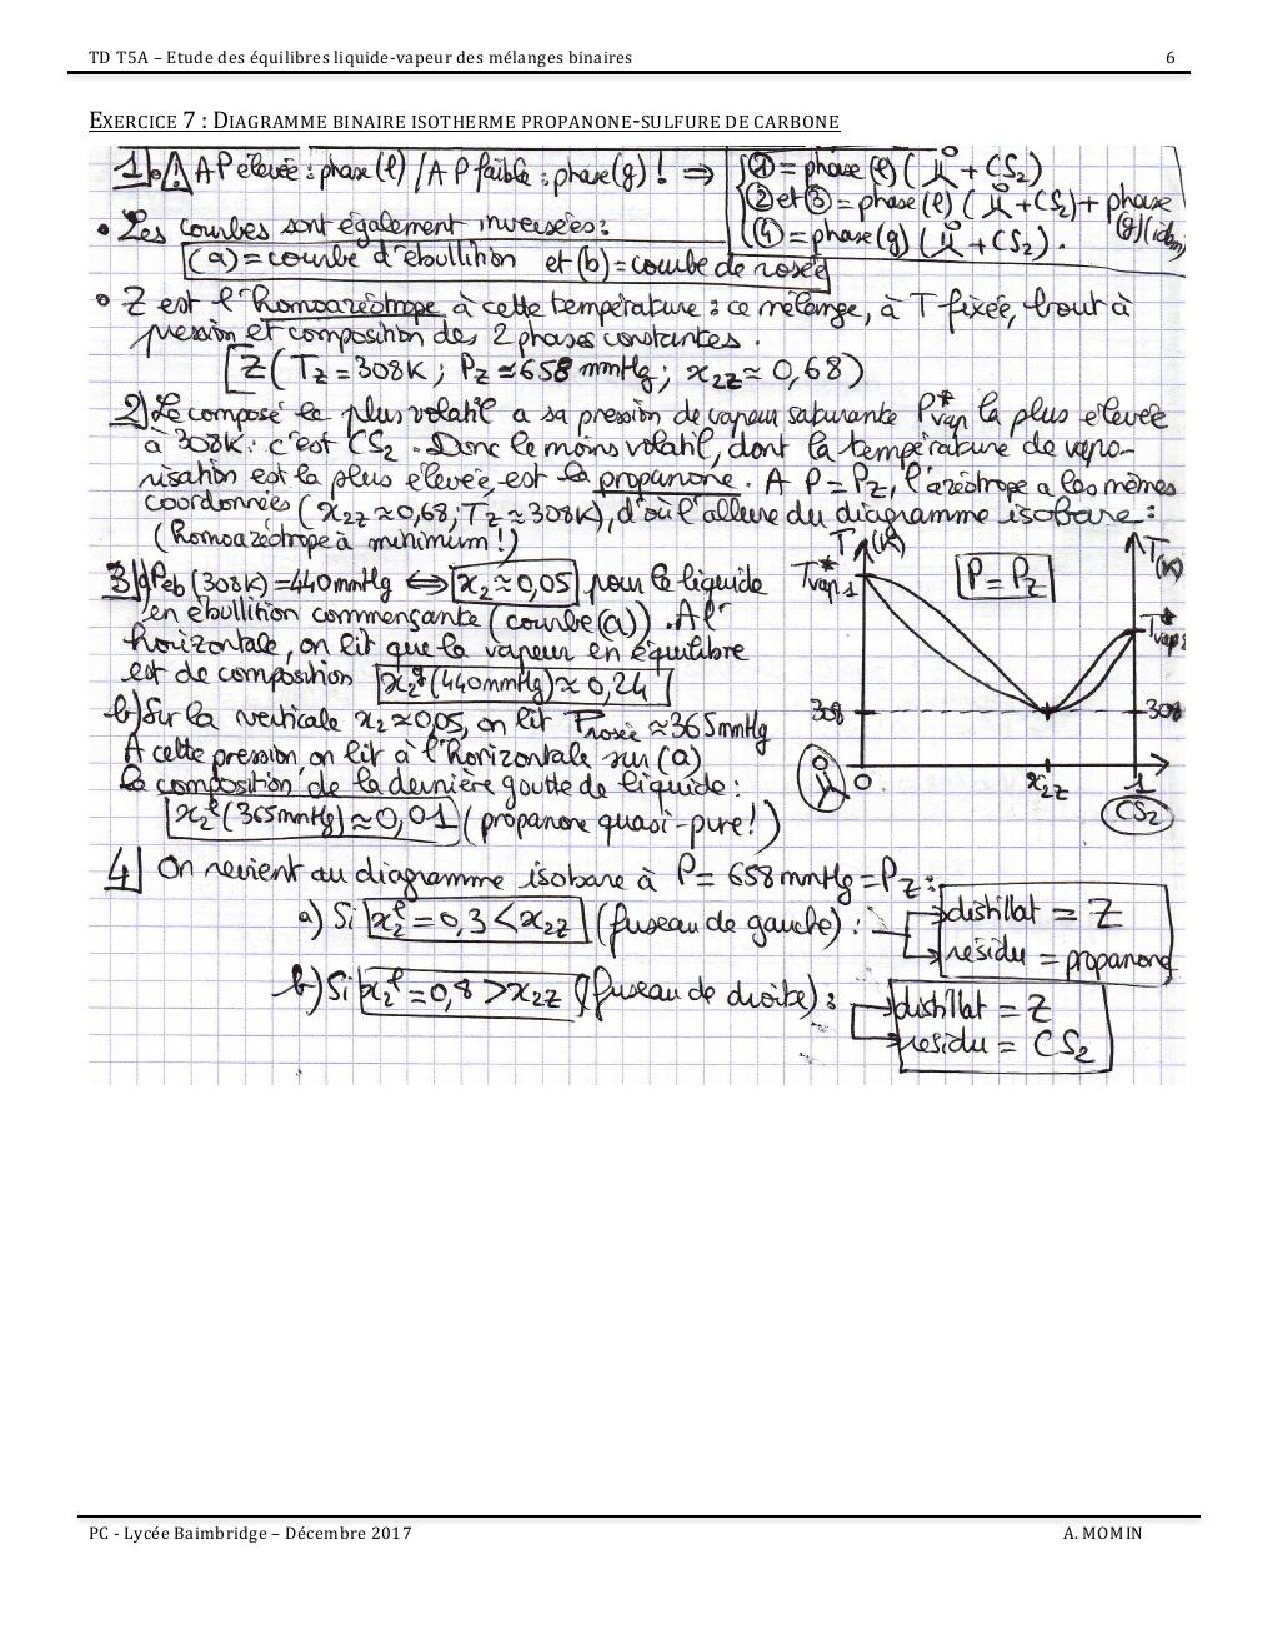 TD T5A – Etude des équilibres liquide-vapeur des mélanges binaires 6
EXERCICE 7 : DIAGRAMME BINAIRE ISOTHERME PROPANONE-SULFURE DE CARBONE
1) • ⚠ A P élevée : phase (l) / A P faible : phase (g) ! ⇒ ① = phase (l) ( + CS2)
② et ③ = phase (l) ( + CS2) + phase (g) (idem)
④ = phase (g) ( + CS2).
• Les courbes sont également inversées :
(a) = courbe d'ébullition et (b) = courbe de rosée
• Z est l'homoazéotrope à cette température : ce mélange, à T fixée, bout à
pression et composition des 2 phases constantes.
Z ( TZ = 308K ; PZ ≈ 658 mmHg ; x2Z ≈ 0,68)
2) Le composé le plus volatil a sa pression de vapeur saturante P*vap la plus élevée
à 308K : c'est CS2. Donc le moins volatil, dont la température de vapo-
risation est la plus élevée, est la propanone. A P = PZ, l'azéotrope a les mêmes
coordonnées (x2Z ≈ 0,68 ; TZ ≈ 308K), d'où l'allure du diagramme isobare :
(homoazéotrope à minimum !)
T (K)
T(K)
P = PZ
T*vap1
T*vap2
308
308
0
x2Z
1
CS2
3) a) Peb (308K) = 440 mmHg ⇔ x2 ≈ 0,05 pour le liquide
en ébullition commençante (courbe (a)). A l'
horizontale, on lit que la vapeur en équilibre
est de composition x2g (440mmHg) ≈ 0,24
b) Sur la verticale x2 ≈ 0,05, on lit Prosée ≈ 365 mmHg
A cette pression, on lit à l'horizontale sur (a)
la composition de la dernière goutte de liquide :
x2l (365mmHg) ≈ 0,01 (propanone quasi-pure !)
4) On revient au diagramme isobare à P = 658 mmHg = PZ :
a) Si x2l = 0,3 < x2Z (fuseau de gauche) : distillat = Z
résidu = propanone
b) Si x2l = 0,8 > x2Z (fuseau de droite) : distillat = Z
résidu = CS2
PC - Lycée Baimbridge – Décembre 2017 A. MOMIN